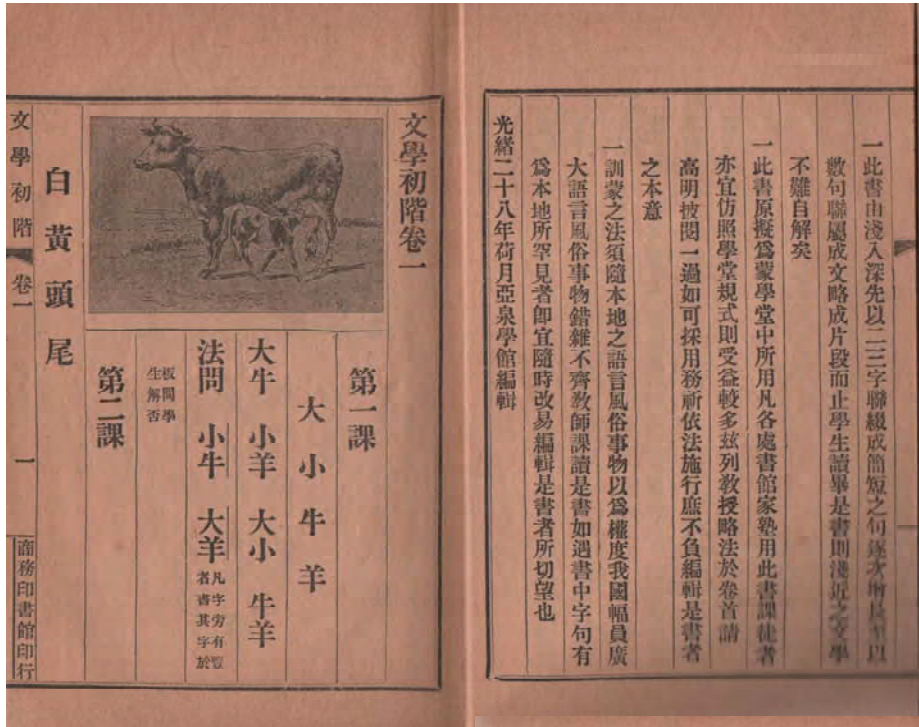 一此書由淺入深先以二三字聯綴成簡短之句遂次增長至以
數句聯屬成文略成片段而止學生讀畢是書則淺近之文學
不難自解矣
一此書原擬爲蒙學堂中所用凡各處書館家塾用此書課徒者
亦宜仿照學堂規式則受益較多茲列教授略法於卷首請
高明披閱一過如可採用務祈依法施行庶不負編輯是書者
之本意
一訓蒙之法須隨本地之語言風俗事物以爲權度我國幅員廣
大語言風俗事物錯雜不齊教師課讀是書如遇書中字句有
爲本地所罕見者卽宜隨時改易編輯是書者所切望也
光緒二十八年荷月亞泉學館編輯
文學初階卷一
第一課
大 小 牛 羊
大牛 小羊 大小 牛羊
法問 小牛 大羊 凡字旁有豎
者書其字於
板問學
生解否
第二課
白 黃 頭 尾
文學初階 卷一 一 商務印書館印行